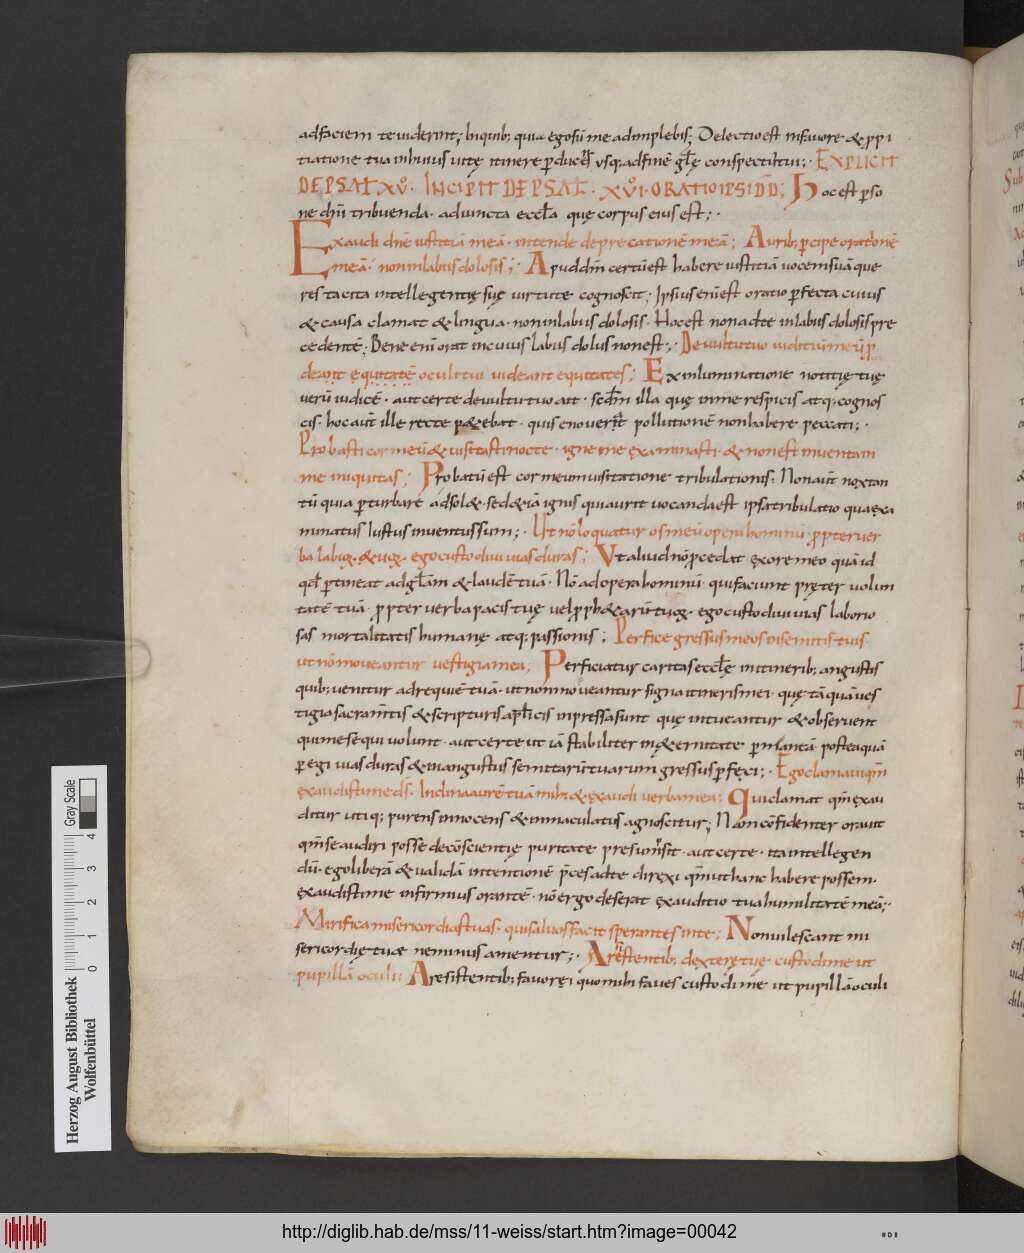 adfaciem te uiderint; In quib; quia ego sū me adimplebis; Delectio est in fauore & ppi
tiatione tua in huius uitę itinere pducēs usq; ad finē glę conspectus tui; · EXPLICIT
DE PSAL XV̊. INCIPIT DE PSAL · XVI̊ · ORATIO IPSI DD̄; Hoc est pso
ne dn̄i tribuenda · adiuncta eccl̄a quę corpus eius est; ·
Exaudi dn̄e iustitiā meā · intende deprecationē meā; Aurib; pcipe orationē
meā · non in labiis dolosis; · Apud dn̄m certū est habere iustitiā uocem suā que
res tacita intellegentię suę uirtute cognoscit · Ipsius enī est oratio pfecta cuius
& causa clamat & lingua · non in labiis dolosis · Hoc est non a de te in labiis dolosis pre
cedentē; Bene enī orat in cuius labiis dolus non est; · De uultu tuo iudiciū meū p
deant equitatē oculi tui uideant equitates; Ex inluminatione notitię tuę
uerū iudicē · aut certe de uultu tuo ait · secdm̄ illa quę in me respicis atq; cognos
cis · hoc aut̄ ille recte petebat · qui se nouerat pollutionē non habere peccati; ·
Probasti cor meū & uisitasti nocte · igne me examinasti · & non est inuenta in
me iniquitas; Probatū est cor meum uisitatione tribulationis; Non aut̄ nox tan
tū quia pturbare adsolet · sed etiā ignis qui aurit uocanda est ipsa tribulatio qua exa
minatus iustus inuentus sum; · Ut nō loquatur os meū opera hominū · ppter uer
ba labior̄ tuor̄ · ego custodiui uias duras; Ut aliud nō pcedat ex ore meo quā id
qd ptineat ad glam & laudē tuā · Nō ad opera hominū · qui faciunt pręter uolun
tatē tuā · ppter uerba pacis tuę uel pphetarū tuor̄ · ego custodiui uias laborio
sas mortalitatis humanę atq; passionis; Perfice gressus meos in semitis tuis
ut nō moueantur uestigia mea; Perficiatur caritas eccl̄ę in itinerib; angustis
quib; uenitur ad requiē tuā · ut non moueantur signa itineris mei · quę tāquā ues
tigia sacramtis & scripturis apl̄icis inpressa sunt quę intueantur & obseruent
qui me sequi uolunt · aut certe ut iā stabiliter in eternitate pmaneā postea quā
p egi uias duras & in angustiis semitarū tuarum gressus pfeci; · Ego clamaui qm̄
exaudisti me ds̄ · Inclina aurē tuā mihi & exaudi uerba mea; Qui clamat qm̄ exau
ditur utiq; purens innocens & inmaculatus agnoscitur; Nam cōfidenter orauit
qm̄ se audiri posse de cōscientię puritate presumsit · aut certe · ita intellegen
dū · ego liberā & ualidā intentionē pces ad te direxi qm̄ ut hanc habere possem ·
exaudisti me infirmius orantē · nō ergo deserat exauditio tua humilitatē meā; ·
Mirifica misericordias tuas · qui saluos facit sperantes in te; Non uilescant mi
sericordię tuę ne minus amentur; · A resistentib; dexterę tuę · custodi me ut
pupillā oculi; A resistentib; fauore qui quo mihi faues custodi me ut pupillā oculi
Gray Scale
0 1 2 3 4
Herzog August Bibliothek
Wolfenbüttel
http://diglib.hab.de/mss/11-weiss/start.htm?image=00042